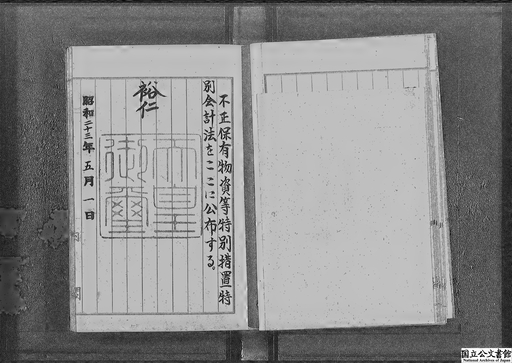 不正保有物資等特別措置特
別会計法をここに公布する。
裕仁
天皇
御璽
昭和二十三年五月一日
内閣
国立公文書館
National Archives of Japan